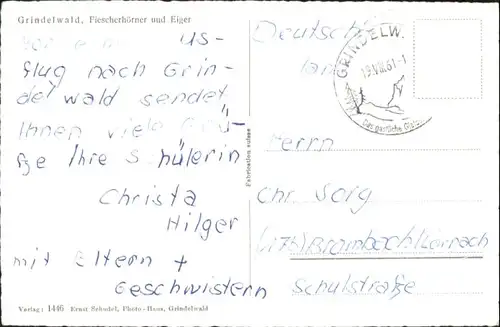 Grindelwald, Fiescherhörner und Eiger
Von einem Aus-
flug nach Grin-
delwald sendet
Ihnen viele Grü-
ße Ihre Schülerin
Christa
Hilger
mit Eltern +
Geschwistern
Verlag: 1446 Ernst Schudel, Photo-Haus, Grindelwald
Fabrication suisse
GRINDELW
19.VIII.61-1
Das gastliche
Deutsch
lan
Herrn
Chr. Sorg
(17b) Brombach/Lörrach
Schulstraße